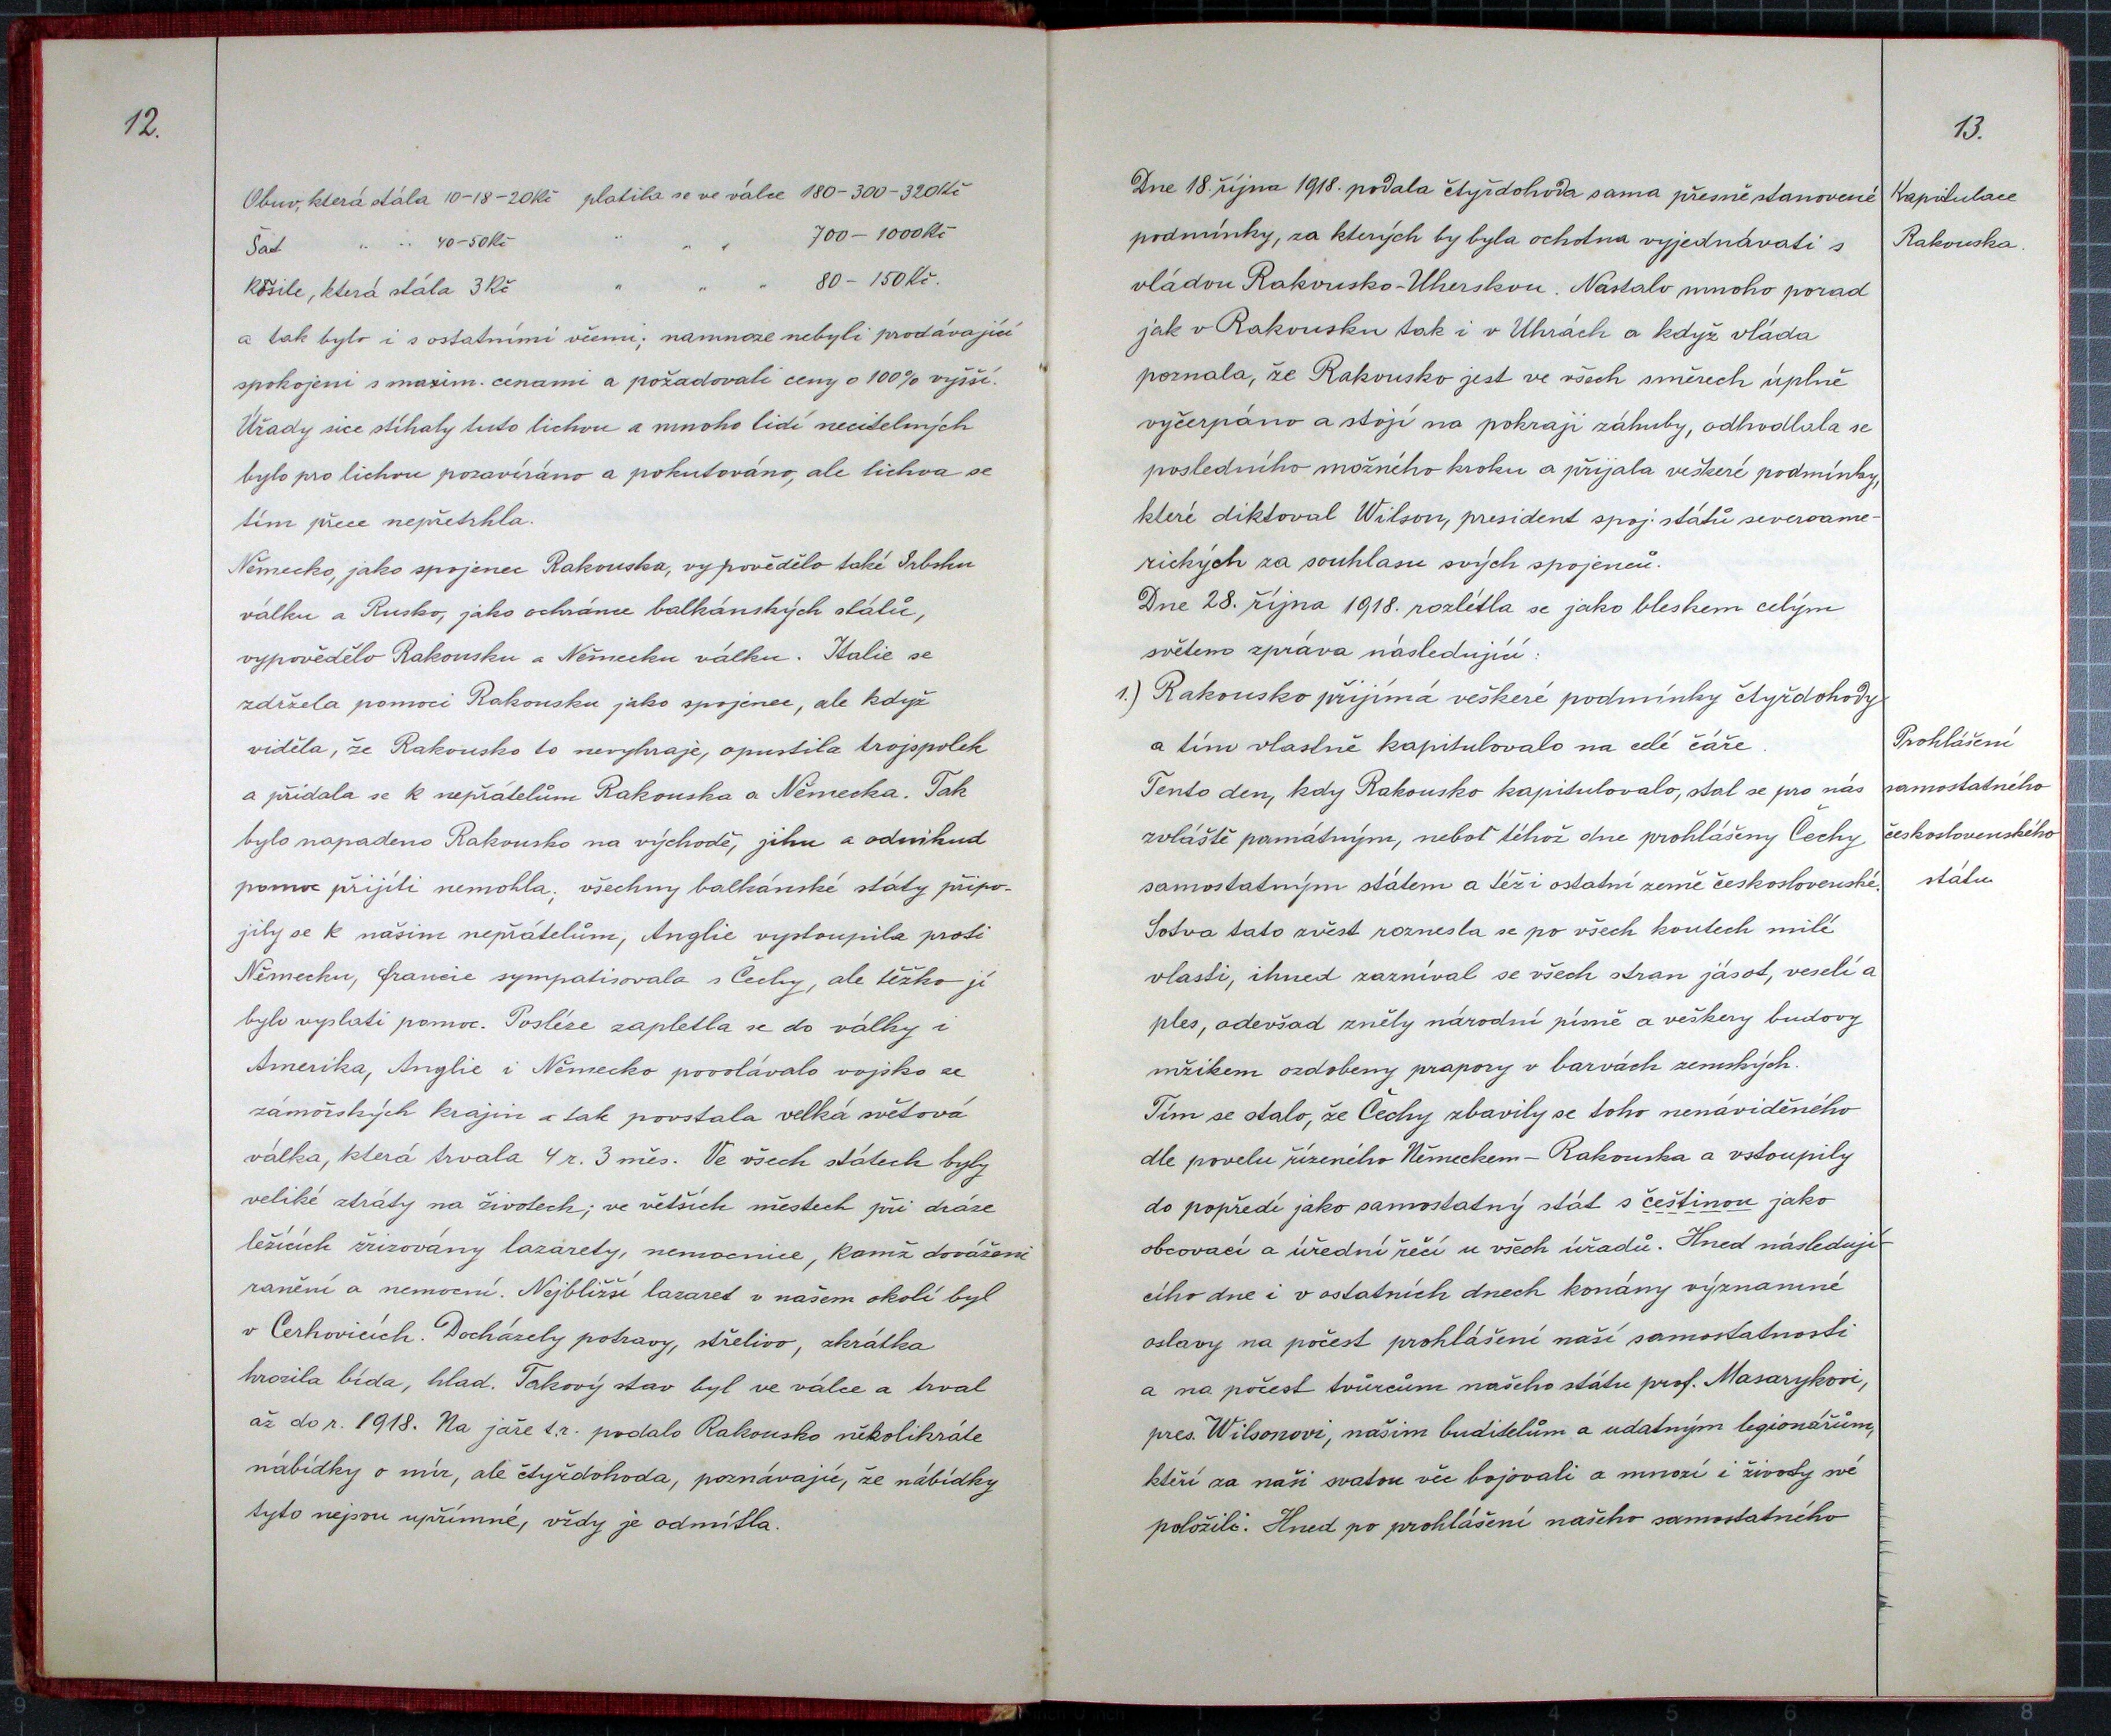 12.
Obuv, která stála 10-18-20Kč platila se ve válce 180-300-320Kč
Šat " " 40-50Kč " " " 700-1000Kč
Košile, která stála 3 Kč " " " 80-150Kč.
a tak bylo i s ostatními věcmi; namnoze nebyli prodávající
spokojeni s maxim. cenami a požadovali ceny o 100% vyšší.
Úřady sice stíhaly tuto lichvu a mnoho lidí necitelných
bylo pro lichvu pozavíráno a pokutováno, ale lichva se
tím přece nepřetrhla.
Německo, jako spojenec Rakouska, vypovědělo také Srbsku
válku a Rusko, jako ochránce balkánských států,
vypovědělo Rakousku a Německu válku. Italie se
zdržela pomoci Rakousku jako spojenec, ale když
viděla, že Rakousko to nevyhraje, opustila trojspolek
a přidala se k nepřátelům Rakouska a Německa. Tak
bylo napadeno Rakousko na východě, jihu a odnikud
pomoc přijíti nemohla; všechny balkánské státy připo-
jily se k našim nepřátelům, Anglie vystoupila proti
Německu, Francie sympatisovala s Čechy, ale těžko jí
bylo vyslati pomoc. Posléze zapletla se do války i
Amerika, Anglie i Německo povolávalo vojsko ze
zámořských krajin a tak povstala velká světová
válka, která trvala 4 r. 3 měs. Ve všech státech byly
veliké ztráty na životech; ve větších městech při dráze
ležících zřizovány lazarety, nemocnice, kamž dováženi
ranění a nemocní. Nejbližší lazaret v našem okolí byl
v Cerhovicích. Docházely potravy, střelivo, zkrátka
hrozila bída, hlad. Takový stav byl ve válce a trval
až do r. 1918. Na jaře t.r. podalo Rakousko několikráte
nábídky o mír, ale čtyřdohoda, poznávajíc, že nábídky
tyto nejsou upřímné, vždy je odmítla.
13.
Dne 18. října 1918. podala čtyřdohoda sama přesně stanovené
Kapitulace
podmínky, za kterých by byla ochotna vyjednávati s
Rakouska.
vládou Rakousko-Uherskou. Nastalo mnoho porad
jak v Rakousku tak i v Uhrách a když vláda
poznala, že Rakousko jest ve všech směrech úplně
vyčerpáno a stojí na pokraji záhuby, odhodlala se
posledního možného kroku a přijala veškeré podmínky,
které diktoval Wilson, president spoj. států severoame-
rických za souhlasu svých spojenců.
Dne 28. října 1918. rozlétla se jako bleskem celým
světem zpráva následující:
1.) Rakousko přijímá veškeré podmínky čtyřdohody
a tím vlastně kapitulovalo na celé čáře.
Prohlášení
Tento den, kdy Rakousko kapitulovalo, stal se pro nás
samostatného
zvláště památným, neboť téhož dne prohlášeny Čechy
československého
samostatným státem a též i ostatní země československé.
státu
Sotva tato zvěst roznesla se po všech koutech milé
vlasti, ihned zazníval se všech stran jásot, veselí a
ples, odevšad zněly národní písně a veškery budovy
mžikem ozdobeny prapory v barvách zemských.
Tím se stalo, že Čechy zbavily se toho nenáviděného
dle povelu řízeného Německem - Rakouska a vstoupily
do popředí jako samostatný stát s češtinou jako
obcovací a úřední řečí u všech úřadů. Hned následují-
cího dne i v ostatních dnech konány významné
oslavy na počest prohlášení naší samostatnosti
a na počest tvůrcům našeho státu prof. Masarykovi,
pres. Wilsonovi, našim buditelům a udatným legionářům,
kteří za naši svatou věc bojovali a mnozí i životy své
položili. Hned po prohlášení našeho samostatného